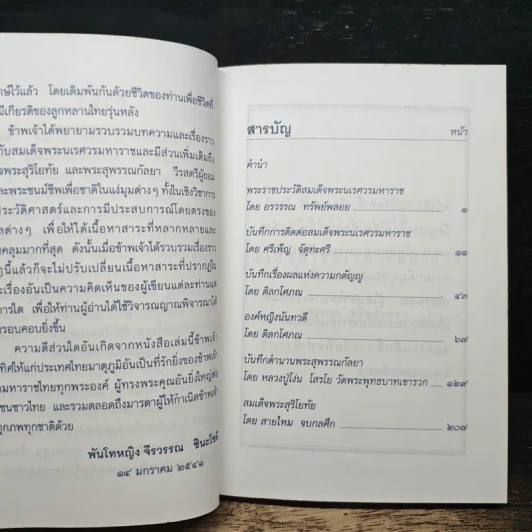 กษ์ไว้แล้ว โดยเดิมพันกันด้วยชีวิตของท่านเพื่อชีวิตที่
มีเกียรติของลูกหลานไทยรุ่นหลัง
ข้าพเจ้าได้พยายามรวบรวมบทความและเรื่องราว
กับสมเด็จพระนเรศวรมหาราชและมีส่วนเพิ่มเติมถึง
จพระสุริโยทัย และพระสุพรรณกัลยา วีรสตรีผู้ยอม
ะพระชนม์ชีพเพื่อชาติในแง่มุมต่างๆ ทั้งในเชิงวิชาการ
ะวัติศาสตร์และการมีประสบการณ์โดยตรงของ
ลต่างๆ เพื่อให้ได้เนื้อหาสาระที่หลากหลายและ
คลุมมากที่สุด ดังนั้นเมื่อข้าพเจ้าได้รวบรวมเรื่องราว
นี้แล้วก็จะไม่ปรับเปลี่ยนเนื้อหาสาระที่ปรากฏใน
ะเรื่องอันเป็นความคิดเห็นของผู้เขียนแต่ละท่านแต่
การใด เพื่อให้ท่านผู้อ่านได้ใช้วิจารณญาณพิจารณาได้
รอบคอบยิ่งขึ้น
ความดีส่วนใดอันเกิดจากหนังสือเล่มนี้ข้าพเจ้า
ทิศให้แก่ประเทศไทยมาตุภูมิอันเป็นที่รักยิ่งของข้าพเจ้า
มหาราชไทยทุกพระองค์ ผู้ทรงพระคุณอันยิ่งใหญ่ต่อ
ชนชาวไทย และรวมตลอดถึงมารดาผู้ให้กำเนิดข้าพเจ้า
ทุกภพทุกชาติด้วย
พันโทหญิง จีรวรรณ
๑๔ มกราคม ๒๕๔๑
สารบัญ หน้า
คำนำ
พระราชประวัติสมเด็จพระนเรศวรมหาราช
โดย อรวรรณ ทรัพย์พลอย ๑
บันทึกการติดต่อสมเด็จพระนเรศวรมหาราช
โดย ศรีเพ็ญ จัตุทะศรี ๑๑
บันทึกเรื่องผลแห่งความกตัญญู
โดย ดิลกโศภณ ๔๓
องค์หญิงนันทวดี
โดย ดิลกโศภณ ๖๗
บันทึกตำนานพระสุพรรณกัลยา
โดย หลวงปู่โง่น โสรโย วัดพระพุทธบาทเขารวก ๑๒๙
สมเด็จพระสุริโยทัย
โดย สายไหม จบกลศึก ๒๐๗